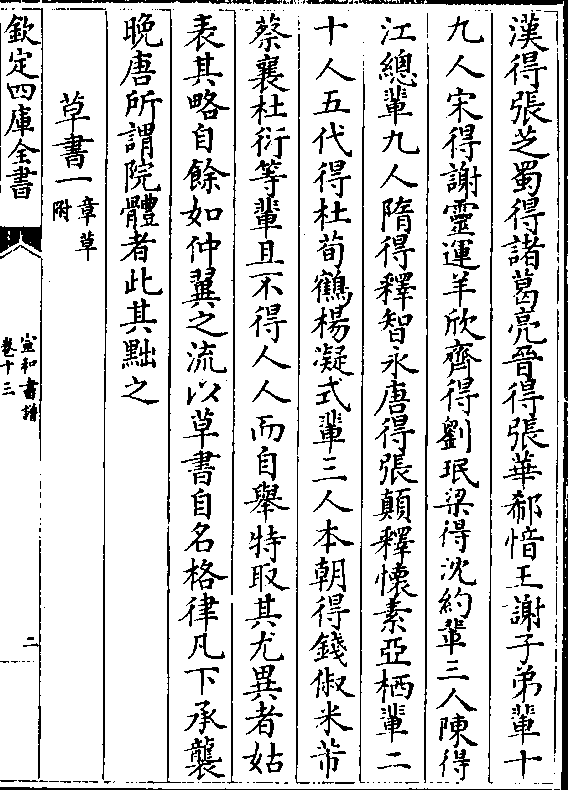 漢得張芝蜀得諸葛亮晉得張華郗愔王謝子弟輩十
九人宋得謝靈運羊欣齊得劉珉梁得沈約輩三人陳得
江總輩九人隋得釋智永唐得張顛釋懷素亞栖輩二
十人五代得杜荀鶴楊凝式輩三人本朝得錢俶米芾
蔡襄杜衍等輩且不得人人而自舉特取其尤異者姑
表其略自餘如仲翼之流以草書自名格律凡下承襲
晚唐所謂院體者此其黜之
草書一
章草
附
欽定四庫全書
宣和書譜
卷十三
二